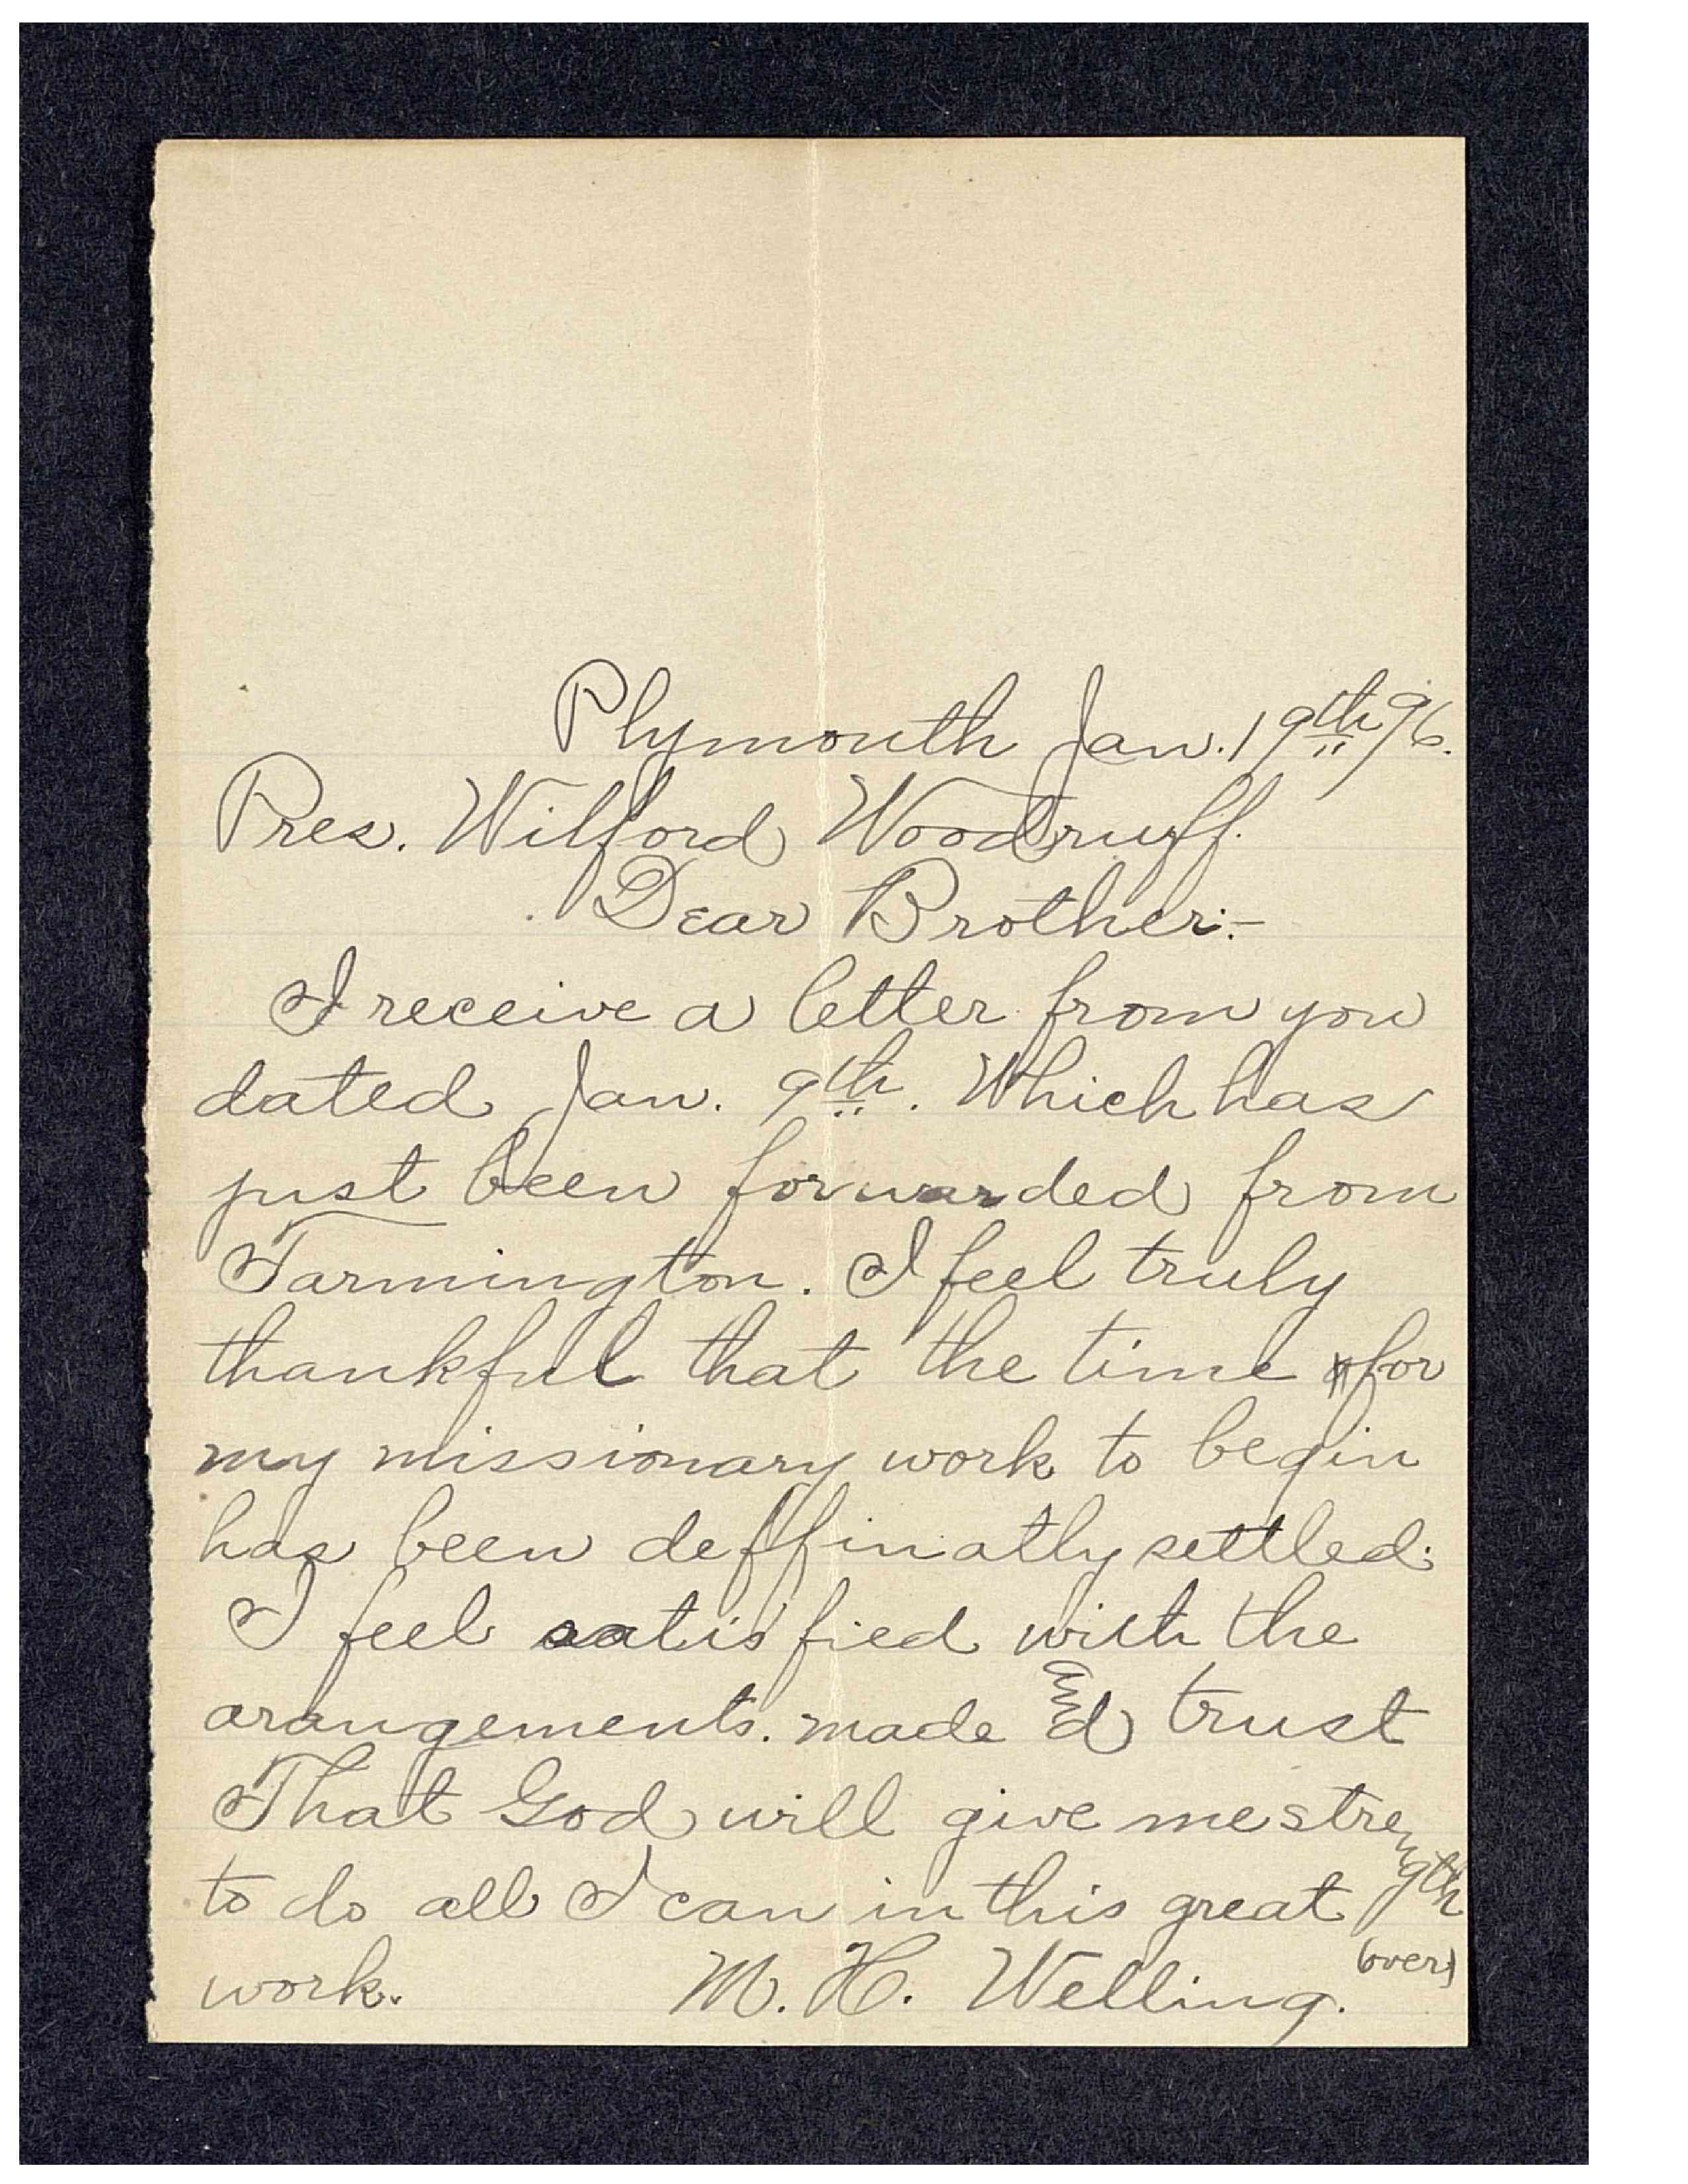 Plymouth Jan. 19th 96.
Pres. Wilford Woodruff.
Dear Brother:-
I receive a letter from you
dated Jan. 9th. Which has
just been forwarded from
Farmington. I feel truly
thankful that the time for
my missionary work to begin
has been deffinatly settled.
I feel satisfied with the
arangements. made & trust
That God will give me strength
to do all I can in this great
(over)
work. M. H. Welling.